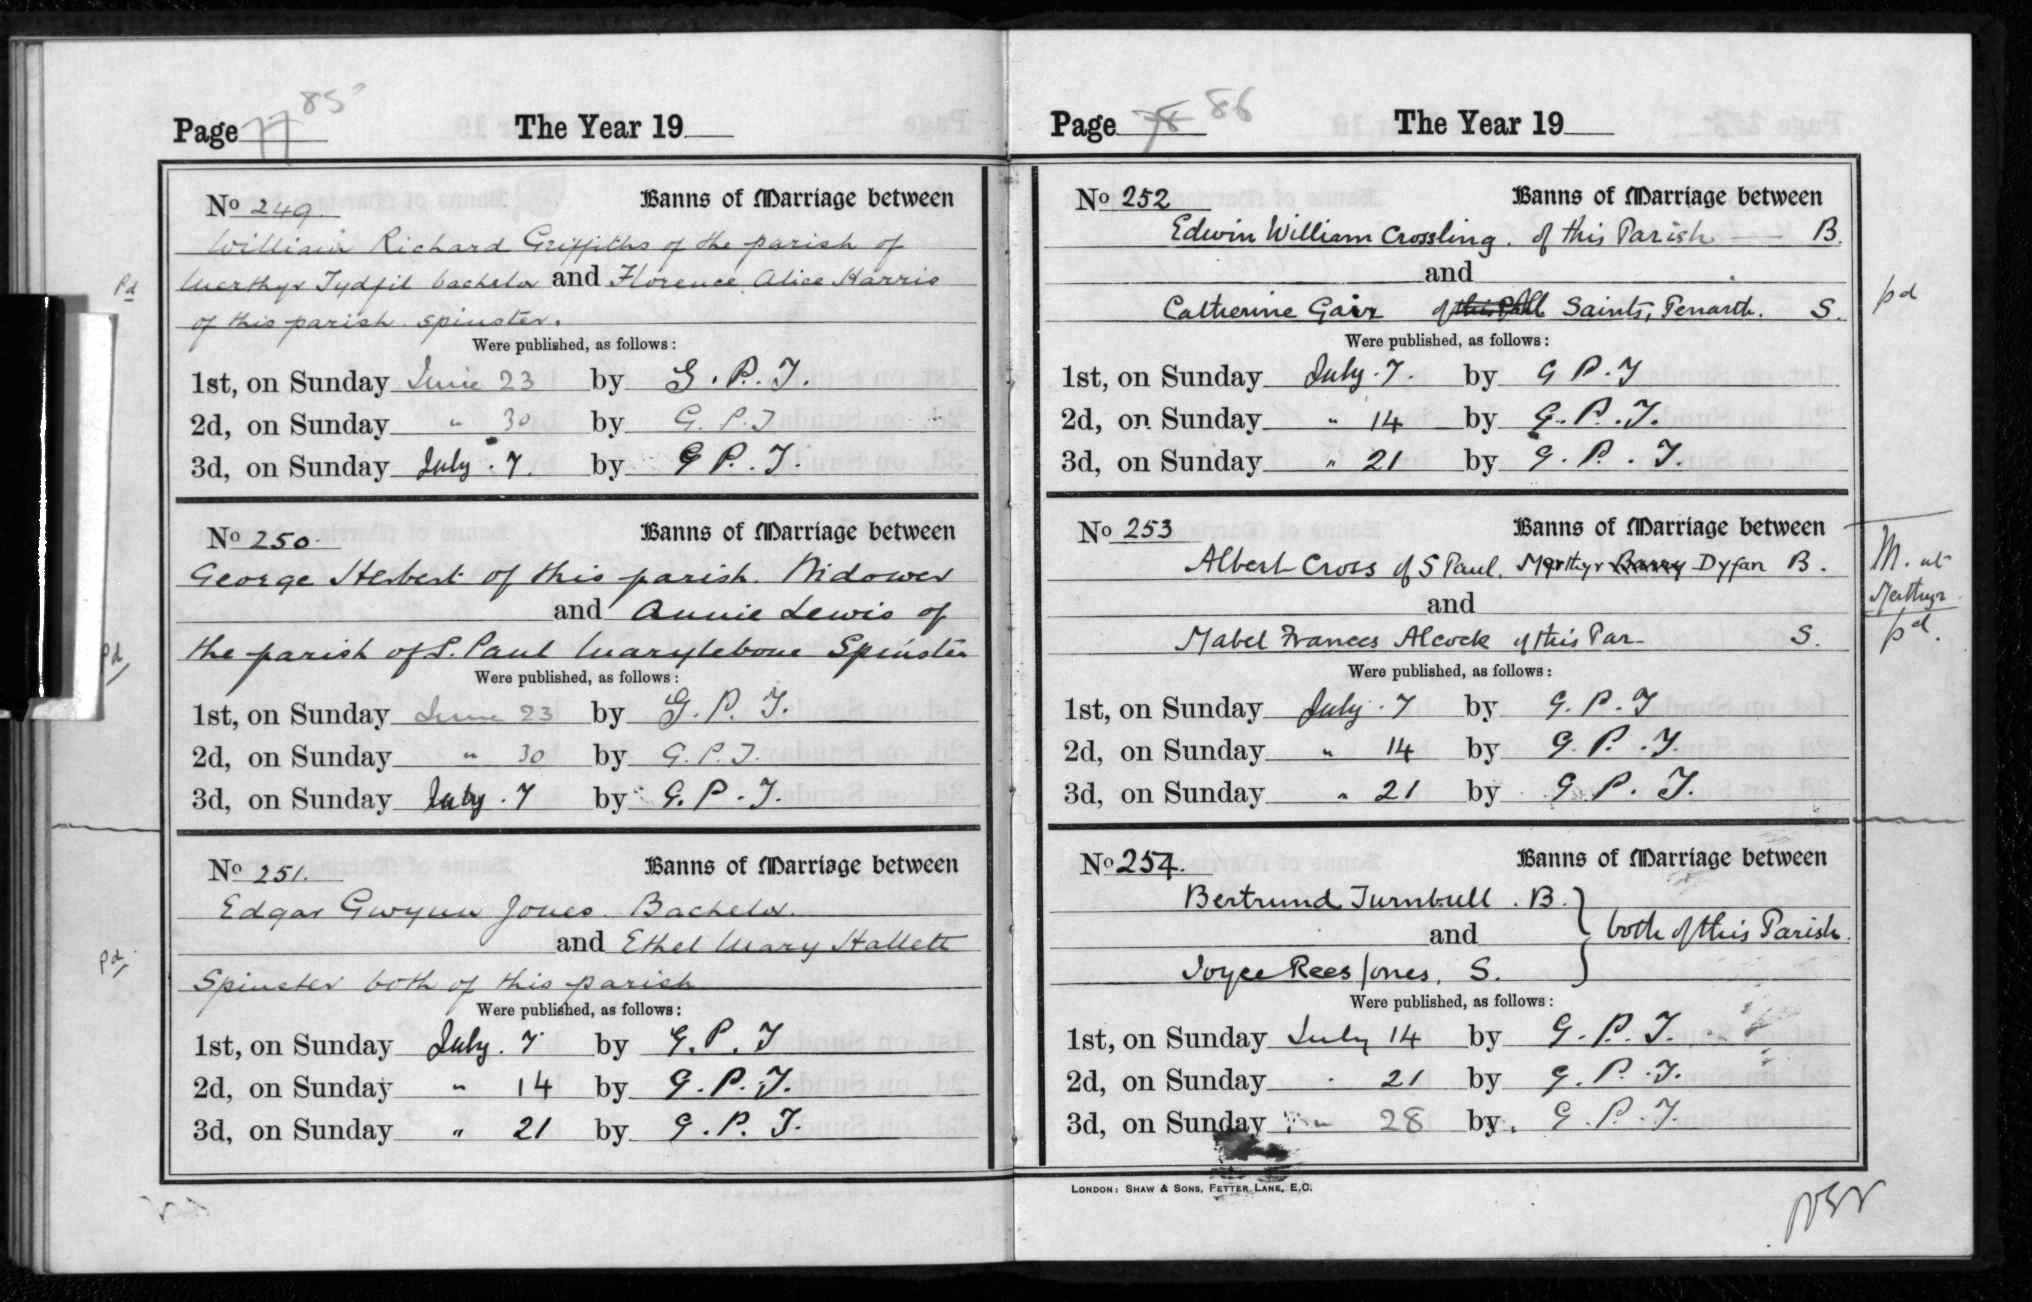 Page 77 85 The Year 19
No 249. Banns of Marriage between
William Richard Griffiths of the parish of
Merthyr Tydfil bachelor and Florence Alice Harris
Pd
of this parish spinster.
Were published, as follows:
1st, on Sunday June 23 by G. P. T.
2d, on Sunday " 30 by G. P. T
3d, on Sunday July. 7. by G P. T.
No 250. Banns of Marriage between
George Herbert of this parish. Widower
and Annie Lewis of
the parish of S. Paul Marylebone Spinster
Pd
Were published, as follows:
1st, on Sunday June 23 by G. P. T.
2d, on Sunday " 30 by G. P. T.
3d, on Sunday July. 7 by G. P. T.
No 251. Banns of Marriage between
Edgar Gwynn Jones. Bachelor.
and Ethel Mary Hallett
Pd
Spinster both of this parish
Were published, as follows:
1st, on Sunday July. 7 by G. P. T
2d, on Sunday " 14 by G. P. T.
3d, on Sunday " 21 by G. P. T.
Page 78 86 The Year 19
No 252 Banns of Marriage between
Edwin William Crossling. of this Parish B.
and
pd
Catherine Gair of this P All Saints, Penarth. S.
Were published, as follows:
1st, on Sunday July. 7. by G P. T
2d, on Sunday " 14 by G. P. T.
3d, on Sunday " 21 by G. P. T.
No 253 Banns of Marriage between
Albert Cross of S Paul. Merthyr Barry Dyfan B.
M. at
Merthyr
pd.
and
Mabel Frances Alcock of this Par S.
Were published, as follows:
1st, on Sunday July. 7 by G. P. T
2d, on Sunday " 14 by G. P. T.
3d, on Sunday " 21 by G. P. T.
No 254. Banns of Marriage between
Bertrund Turnbull. B.
and both of this Parish.
Joyce Rees Jones, S.
Were published, as follows:
1st, on Sunday July 14 by G. P. T.
2d, on Sunday " 21 by G. P. T.
3d, on Sunday " 28 by G. P. T.
LONDON: SHAW & SONS, FETTER LANE, E.C.